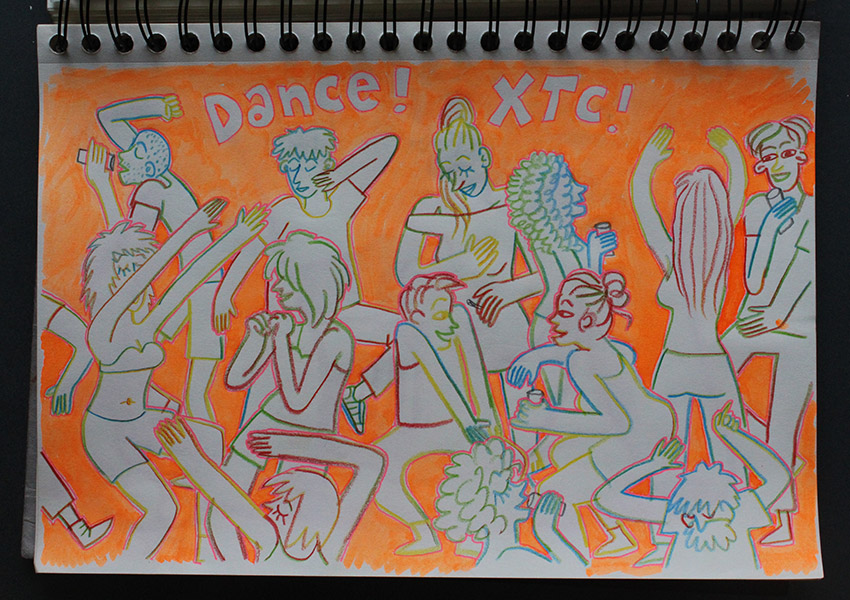 Dance! XTC!